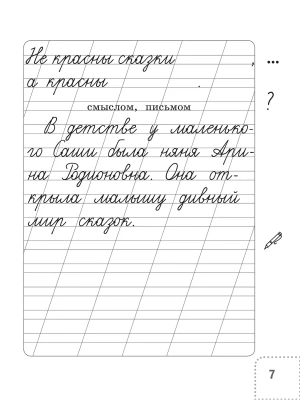 Не красны сказки , ...
а красны .
?
смыслом, письмом
В детстве у маленько-
го Саши была няня Ари-
на Родионовна. Она от-
крыла малышу дивный
мир сказок.
7